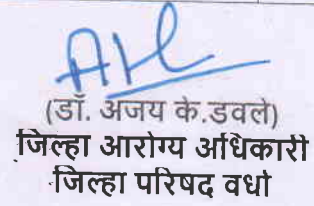 (डॉ. अजय के.डवले)
जिल्हा आरोग्य अधिकारी
जिल्हा परिषद वर्धा